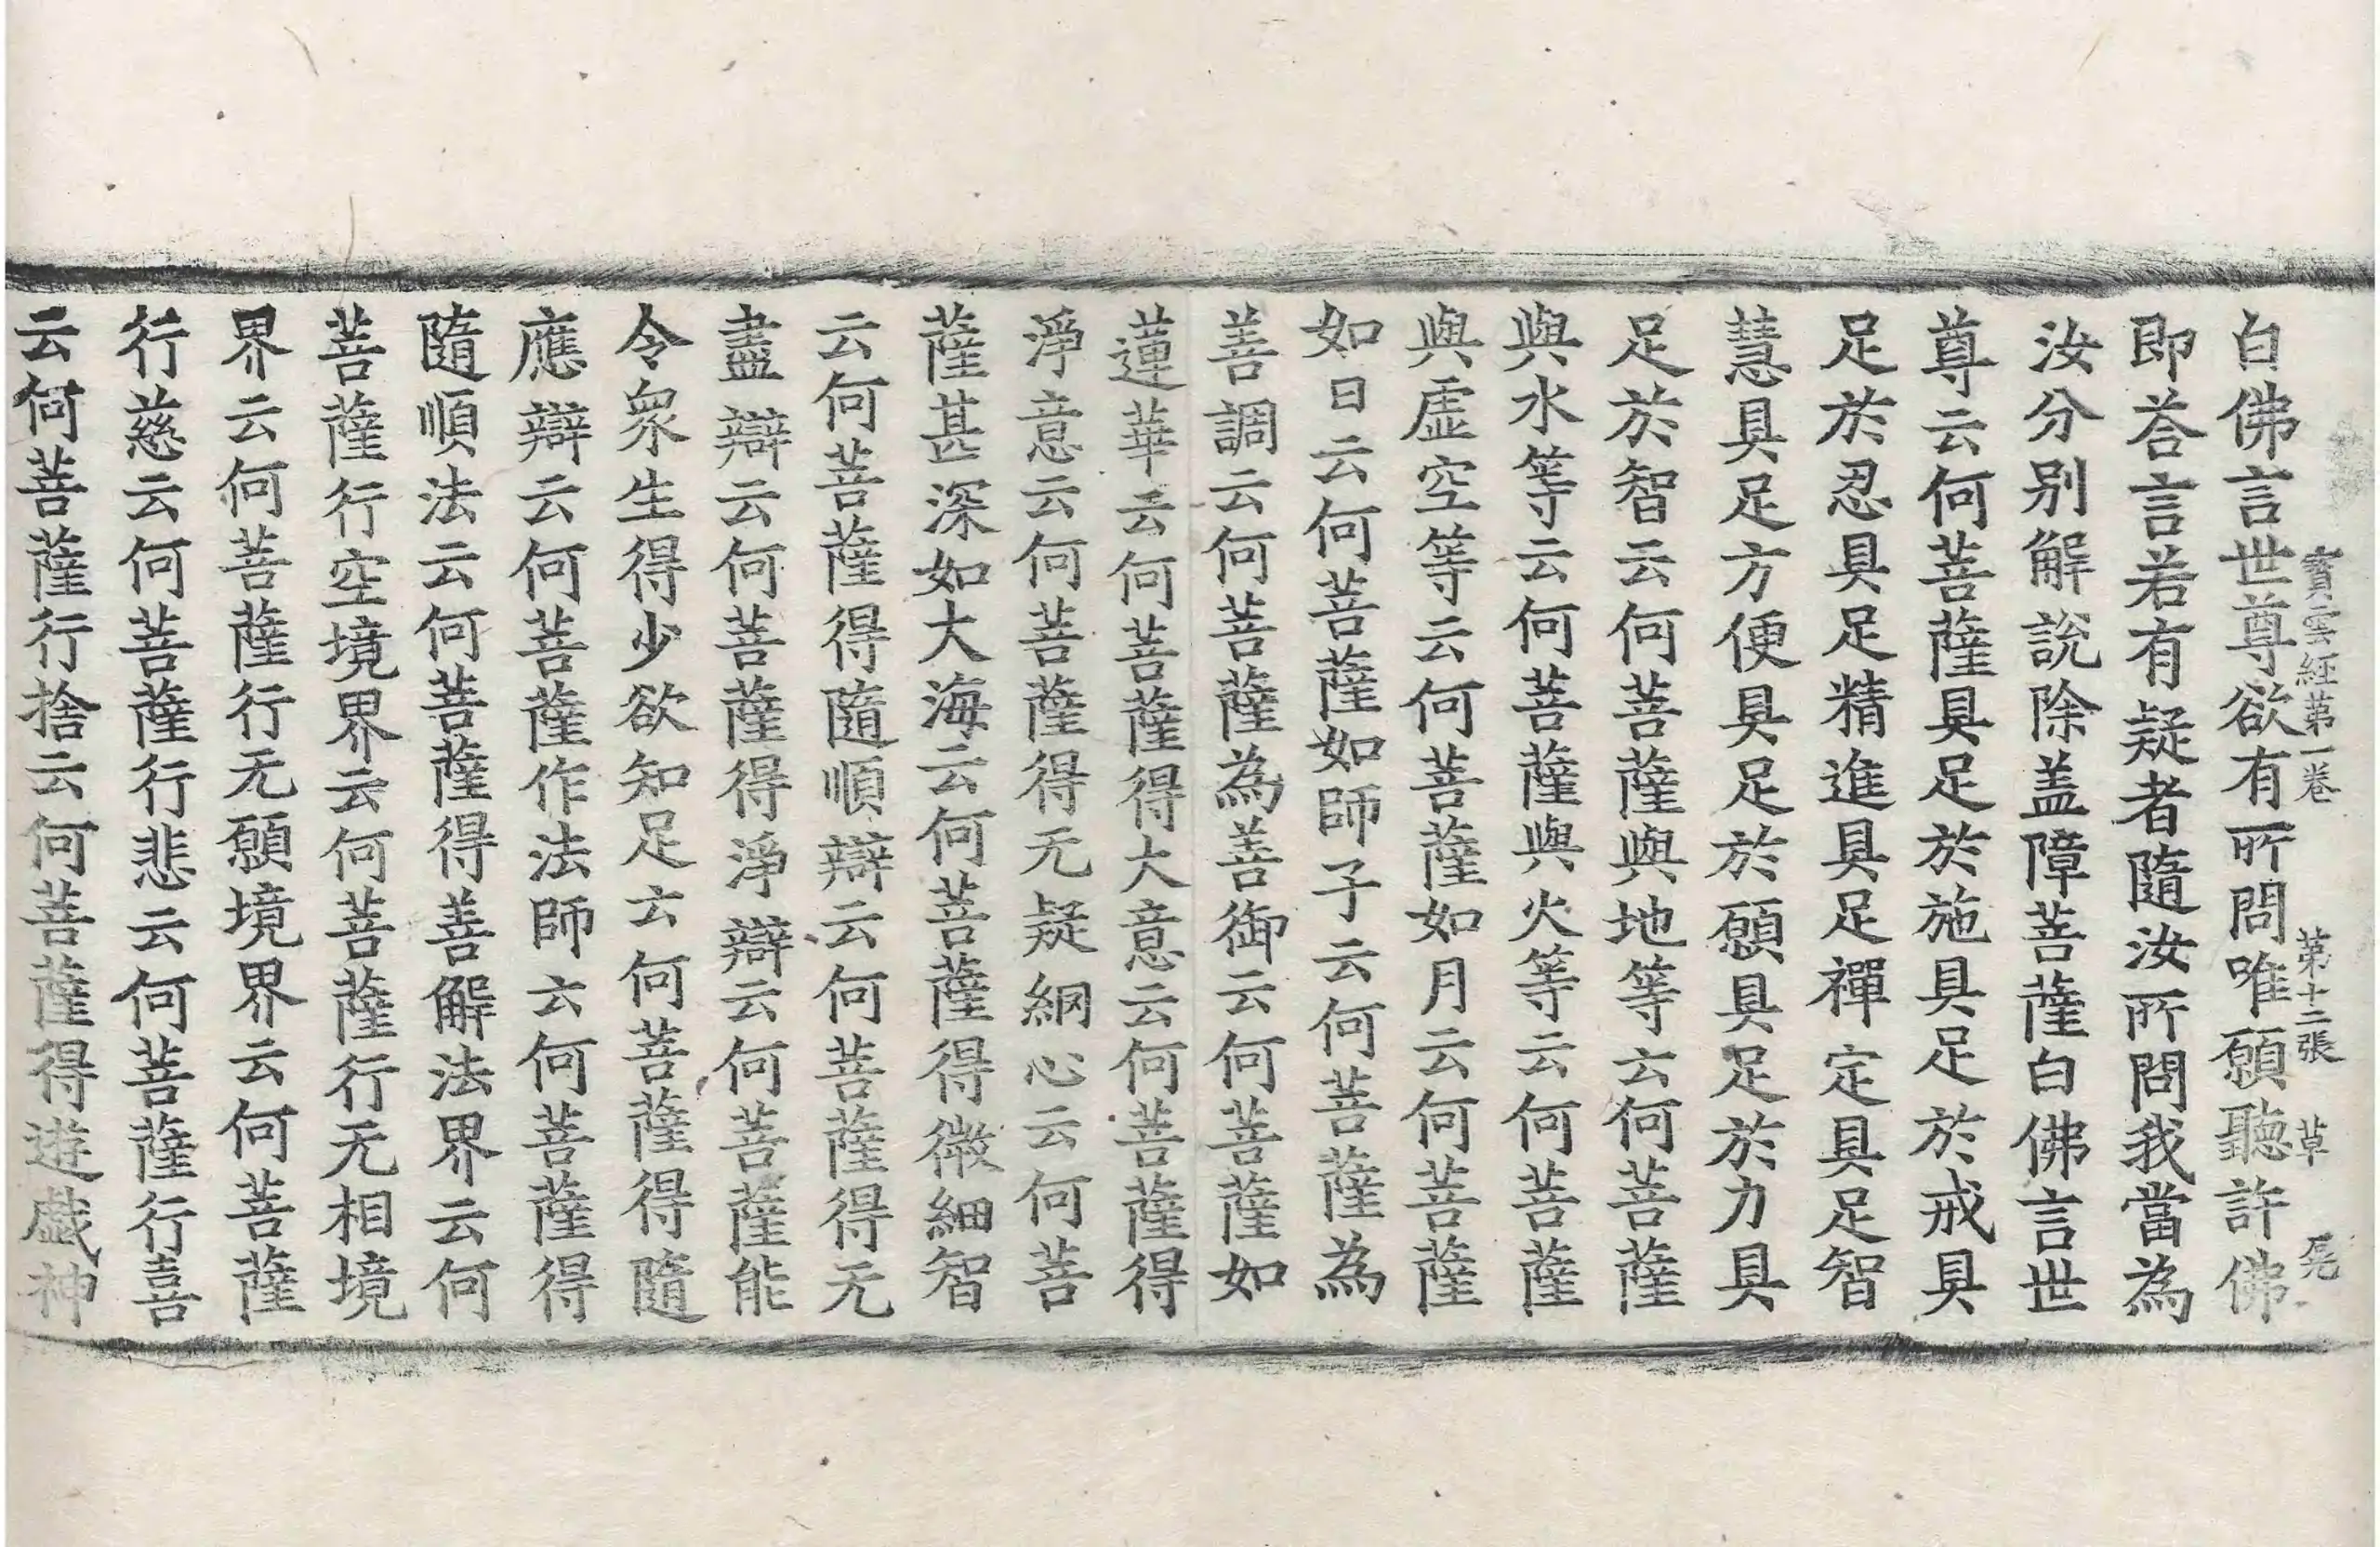 寳雲経苐一卷　苐十二張　草　
白佛言世尊欲有所問唯願聽許佛
即荅言若有疑者隨汝所問我當為
汝分别解說除盖障菩薩白佛言世
尊云何菩薩具足於施具足於戒具
足於忍具足精進具足禪定具足智
慧具足方便具足於願具足於力具
足於智云何菩薩與地等云何菩薩
與水等云何菩薩與火等云何菩薩
與虛空等云何菩薩如月云何菩薩
如日云何菩薩如師子云何菩薩為
善調云何菩薩為善御云何菩薩如
蓮華云何菩薩得大意云何菩薩得
淨意云何菩薩得无疑網心云何菩
薩甚深如大海云何菩薩得微細智
云何菩薩得隨順辯云何菩薩得无
盡辯云何菩薩得淨辯云何菩薩能
令衆生得少欲知足云何菩薩得隨
應辯云何菩薩作法師云何菩薩得
隨順法云何菩薩得善解法界云何
菩薩行空境界云何菩薩行无相境
界云何菩薩行无願境界云何菩薩
行慈云何菩薩行悲云何菩薩行喜
云何菩薩行捨云何菩薩得遊戲神